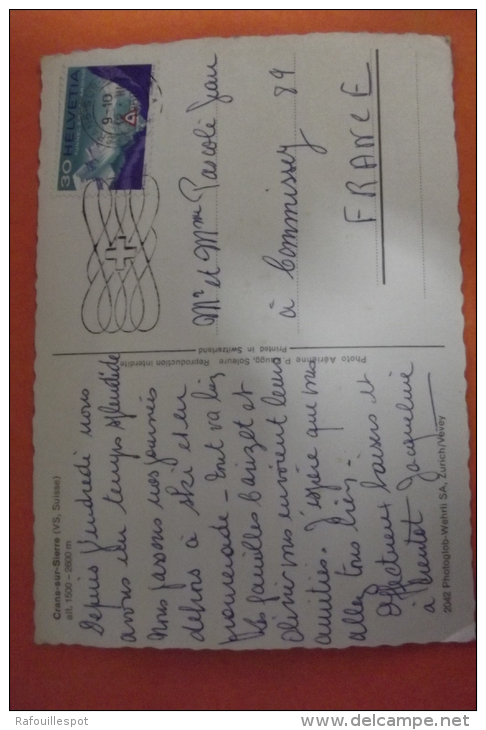 Crans-sur-Sierre (VS, Suisse)
alt. 1500 – 2600 m
Depuis Vendredi nous
avons un temps splendide
Nous passons nos journées
dehors à ski et en
promenade - tout va bien
Les familles Bauzet et
vous envoient leurs
amitiés. J'espère que vous
allez tous bien -
Affectueux baisers et
à bientôt Jacqueline
2042 Photoglob-Wehrli SA, Zürich/Vevey
Photo Aérienne P. Zaugg, Soleure Reproduction interdite
Printed in Switzerland
30 HELVETIA
9-10
Mr et Mme Pascolé Jean
à Commissey 89
FRANCE
Rafouillespot
www.delcampe.net